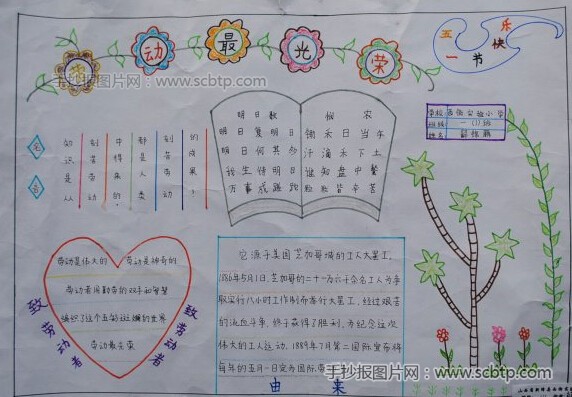 劳动最光荣
五一节快乐
手抄报图片网 - www.scbtp.com
学校:
班级: 一(1)班
姓名:
名言
知识是从
刻苦劳动
中得来的
都是人类
刻苦劳动
的成果!
明日歌
明日复明日
明日何其多
我生待明日
万事成蹉跎
悯农
锄禾日当午
汗滴禾下土
谁知盘中餐
粒粒皆辛苦
致劳动者
劳动是伟大的 劳动是神奇的
劳动者用勤劳的双手和智慧
编织了这个五彩斑斓的世界
劳动最光荣
致劳动者
它源于美国芝加哥城的工人大罢工,
1886年5月1日,芝加哥的二十一万六千余名工人为争
取实行八小时工作制而举行大罢工,经过艰苦
的流血斗争,终于获得了胜利,为纪念这次
伟大的工人运动,1889年7月第二国际宣布将
每年的五月一日定为国际劳
由来
手抄报图片网 www.scbtp.com